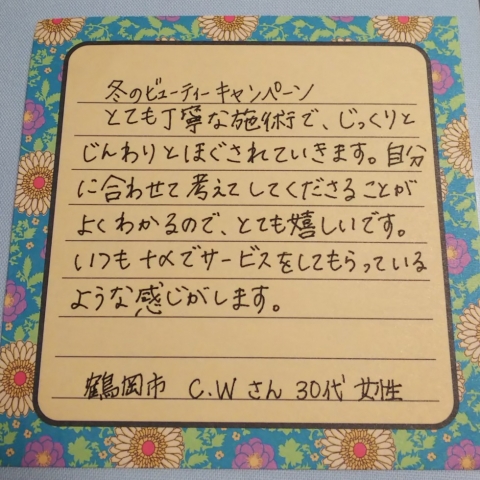 冬のビューティーキャンペーン
とても丁寧な施術で、じっくりと
じんわりとほぐされていきます。自分
に合わせて考えてしてくださることが
よくわかるので、とても嬉しいです。
いつも+αでサービスをしてもらっている
ような感じがします。
鶴岡市 C.Wさん 30代 女性